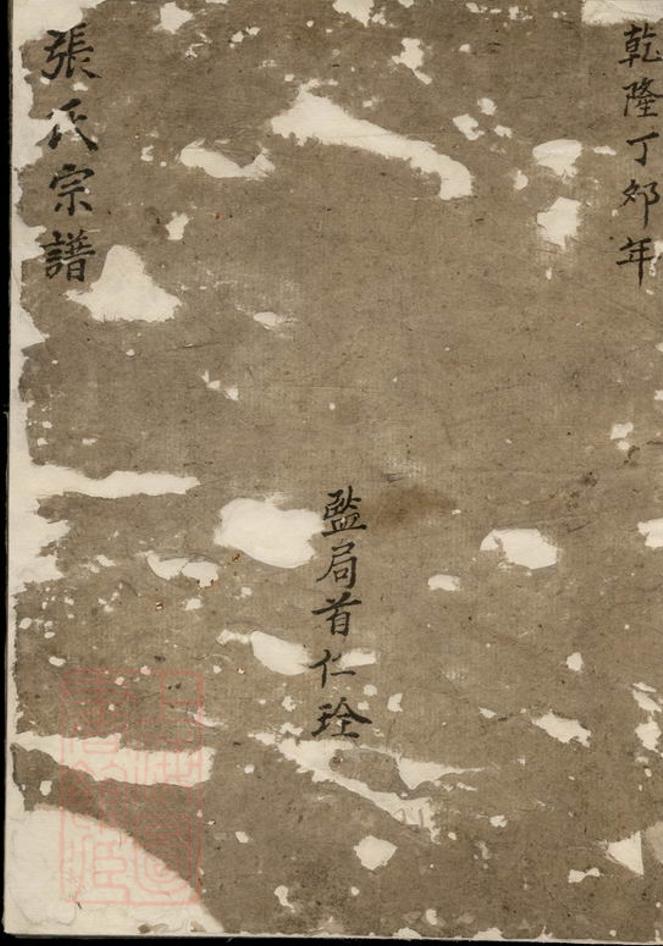 乾隆丁夘年
監局首仁
張氏宗譜